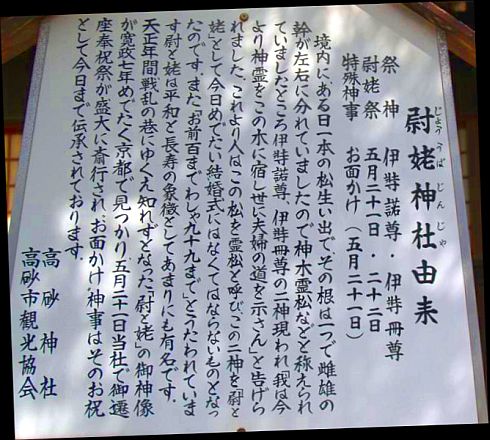 尉姥神社由来
じょううばじんじゃ
祭神　伊弉諾尊・伊弉冊尊
尉姥祭　五月二十一日・二十二日
特殊神事　お面かけ（五月二十一日）
境内に、ある日一本の松生い出で、その根は一つで雌雄の
幹が左右に分れていましたので神木霊松などと称えられ
ていましたところ伊弉諾尊、伊弉冊尊の二神現われ「我は今
より神霊をこの木に宿し世に夫婦の道を示さん」と告げら
れました。これより人はこの松を霊松と呼び、この二神を「尉と
姥」として今日めでたい結婚式にはなくてはならないものとなっ
たのです。また「お前百までわしゃ九十九まで」とうたわれていま
す尉と姥は平和と長寿の象徴としてあまりにも有名です。
天正年間戦乱の巷にゆくえ知れずとなった「尉と姥」の御神像
が寛政七年めでたく京都で見つかり、五月二十一日当社で御遷
座奉祝祭が盛大に斎行され、お面かけ神事はそのお祝
として今日まで伝承されております。
高砂神社
高砂市観光協会